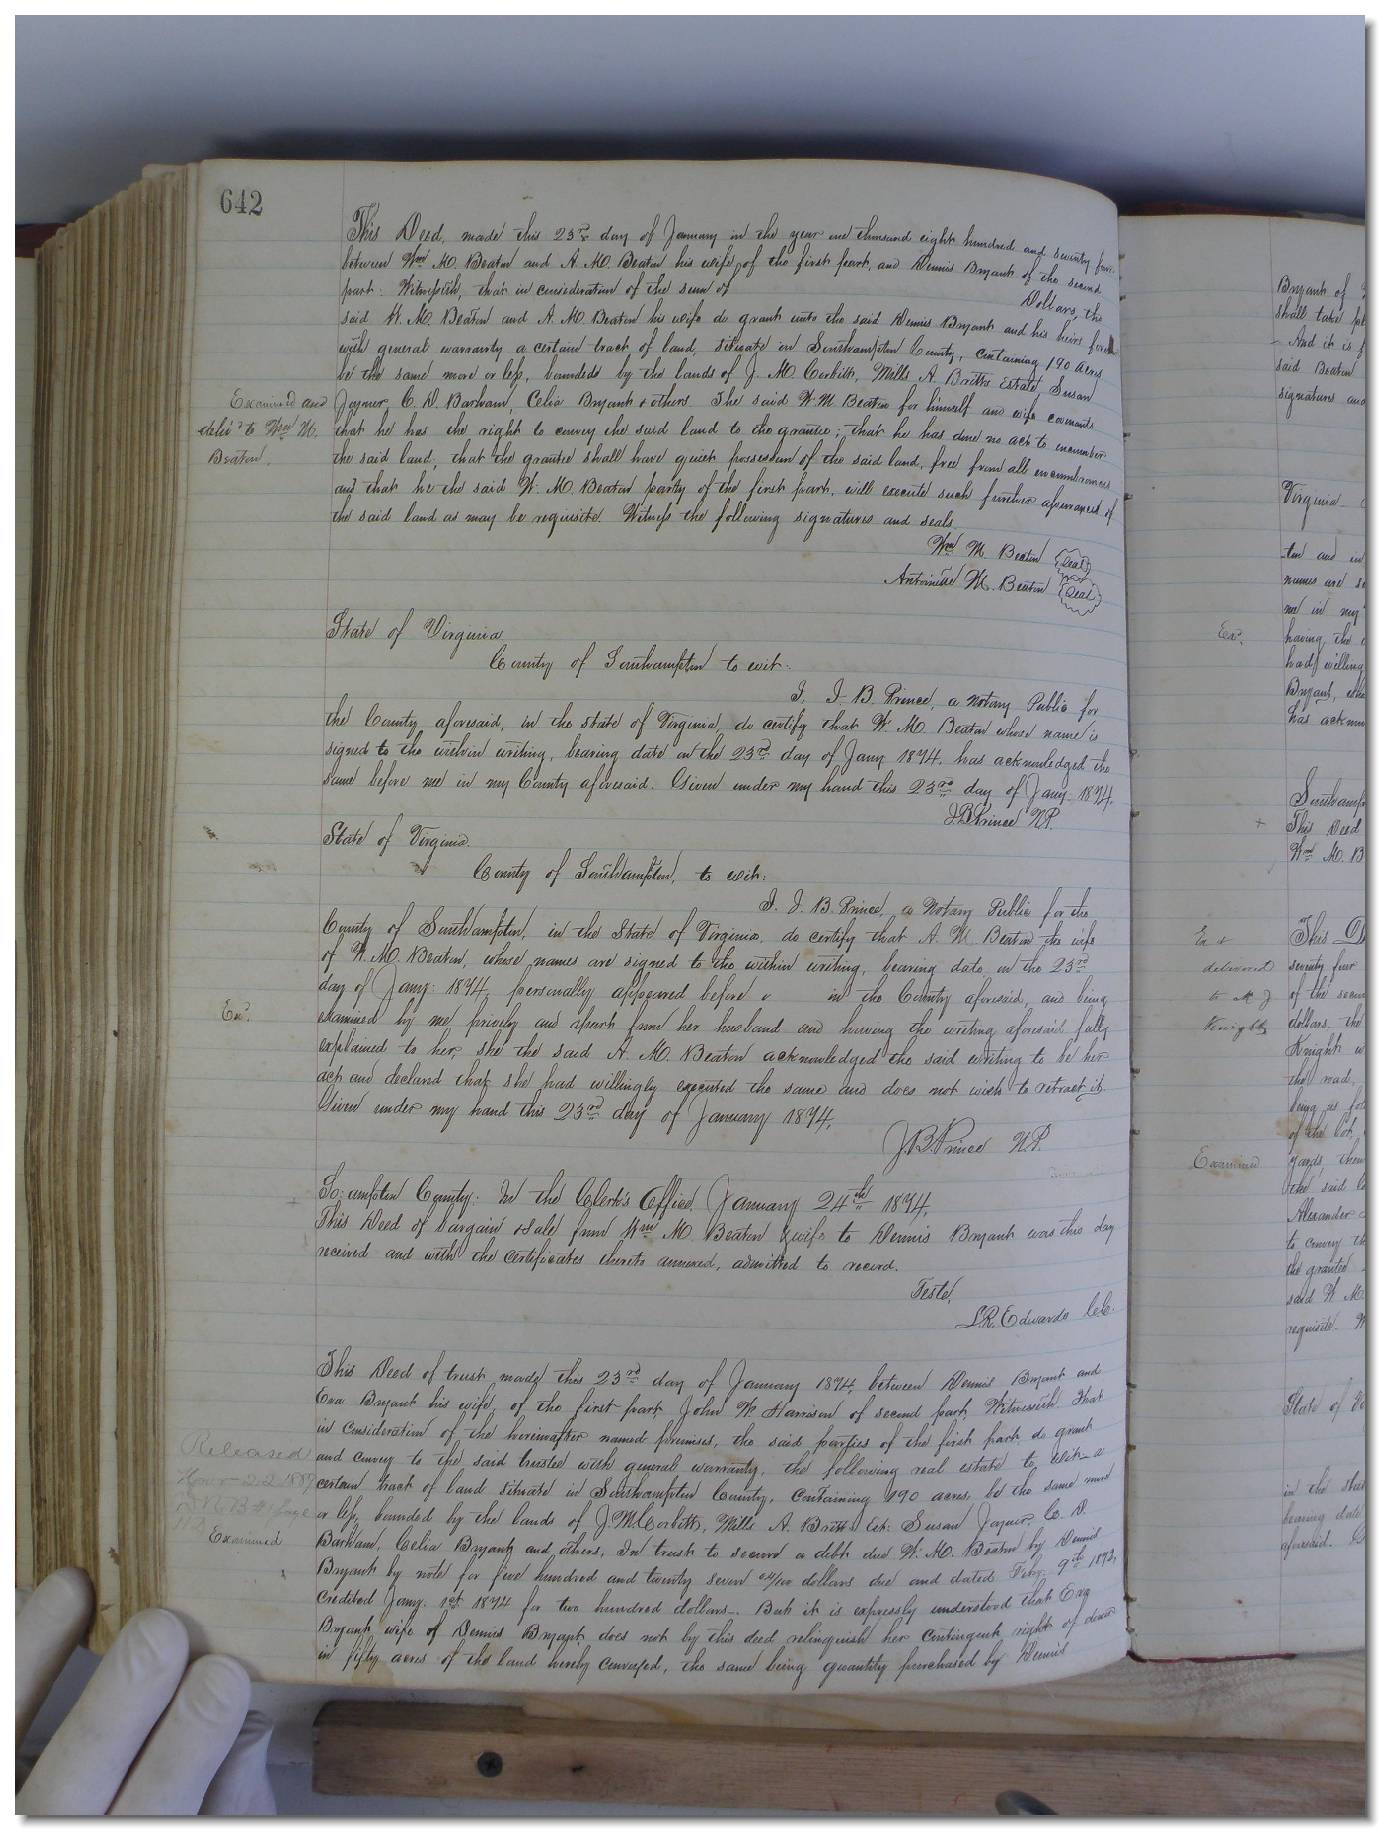 642
This Deed, made this 23rd day of January in the year one thousand eight hundred and seventy four
between Wm M. Beaton and A. M. Beaton his wife, of the first part, and Dennis Bryant of the second
part: Witnesseth, that in consideration of the sum of Dollars, the
said W. M. Beaton and A. M. Beaton his wife do grant unto the said Dennis Bryant and his heirs forever
with general warranty a certain tract of land, situate in Southampton County, containing 190 acres
be the same more or less, bounded by the lands of J. M. Corbitt, Mills A. Britts Estate, Susan
Joyner, C. D. Barham, Celia Bryant & others. The said W. M. Beaton for himself and wife covenants
that he has the right to convey the said land to the grantee; that he has done no act to encumber
the said land; that the grantee shall have quiet possession of the said land, free from all encumbrances
and that he the said W. M. Beaton party of the first part, will execute such further assurances of
the said land as may be requisite. Witness the following signatures and seals.
Examined and
deliv'd to Wm M.
Beaton.
Wm M. Beaton Seal
Antoinette M. Beaton Seal
State of Virginia
County of Southampton to wit:
I, J. B. Prince, a Notary Public for
the County aforesaid, in the state of Virginia, do certify that W. M. Beaton whose name is
signed to the within writing, bearing date on the 23rd day of Jany 1874, has acknowledged the
same before me in my County aforesaid. Given under my hand this 23rd day of Jany 1874.
J. B. Prince N.P.
State of Virginia
County of Southampton, to wit:
I, J. B. Prince, a Notary Public for the
County of Southampton, in the State of Virginia, do certify that A. M. Beaton the wife
of W. M. Beaton, whose names are signed to the within writing, bearing date on the 23rd
day of Jany: 1874, personally appeared before in the County aforesaid, and being
examined by me privily and apart from her husband and having the writing aforesaid fully
explained to her, she the said A. M. Beaton acknowledged the said writing to be her
act and declared that she had willingly executed the same and does not wish to retract it
Given under my hand this 23rd day of January 1874.
Ex'.
J. B. Prince N.P.
So:ampton County: In the Clerk's Office, January 24th 1874.
This Deed of bargain & sale from Wm M. Beaton & wife to Dennis Bryant was this day
received and with the certificates thereto annexed, admitted to record.
Teste,
L. R. Edwards C.C.
This Deed of trust made this 23rd day of January 1874 between Dennis Bryant and
Eva Bryant his wife, of the first part, John W. Harrison of second part, Witnesseth: that
in consideration of the hereinafter named premises, the said parties of the first part do grant
and convey to the said trustee with general warranty, the following real estate to wit: a
certain tract of land situate in Southampton County, containing 190 acres, be the same more
or less, bounded by the lands of J. M. Corbitt, Mills A. Britt Est: Susan Joyner, C. D.
Barham, Celia Bryant and others, In trust to secure a debt due W. M. Beaton by Dennis
Bryant by note for five hundred and twenty seven /100 dollars due and dated Feby. 9th
credited Jany. 1st 1874 for two hundred dollars. But it is expressly understood that Eva
Bryant, wife of Dennis Bryant does not by this deed relinquish her contingent right of dower
in fifty acres of the land hereby conveyed, the same being quantity purchased by Dennis
Released
Examined
Bryant of
shall take
And it is
said Beaton
signatures and
Virginia
ten and in
names are
me in my
having the
had willing
Bryant,
has acknow
Ex'.
Southamp
This Deed
Wm M. B
This D
seventy four
of the secon
dollars the
Knight
the road,
being as
of the lot,
yards, then
the said
Alexander
to convey th
the grantee
said W M
requisite. W
Ex &
delivered
to M J
Knight
Examined
State of
in the Stat
bearing date
aforesaid. G